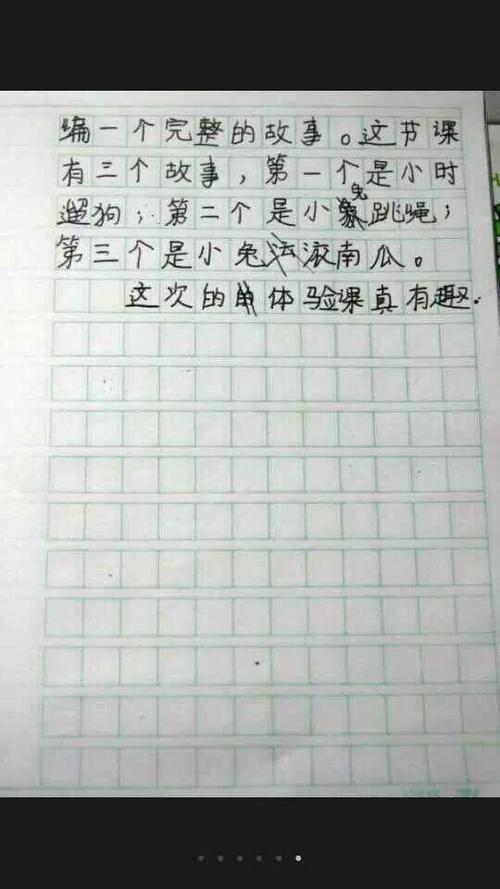 编一个完整的故事。这节课
有三个故事，第一个是小时
遛狗；第二个是小兔跳绳；
第三个是小兔滚南瓜。
这次的体验课真有趣.